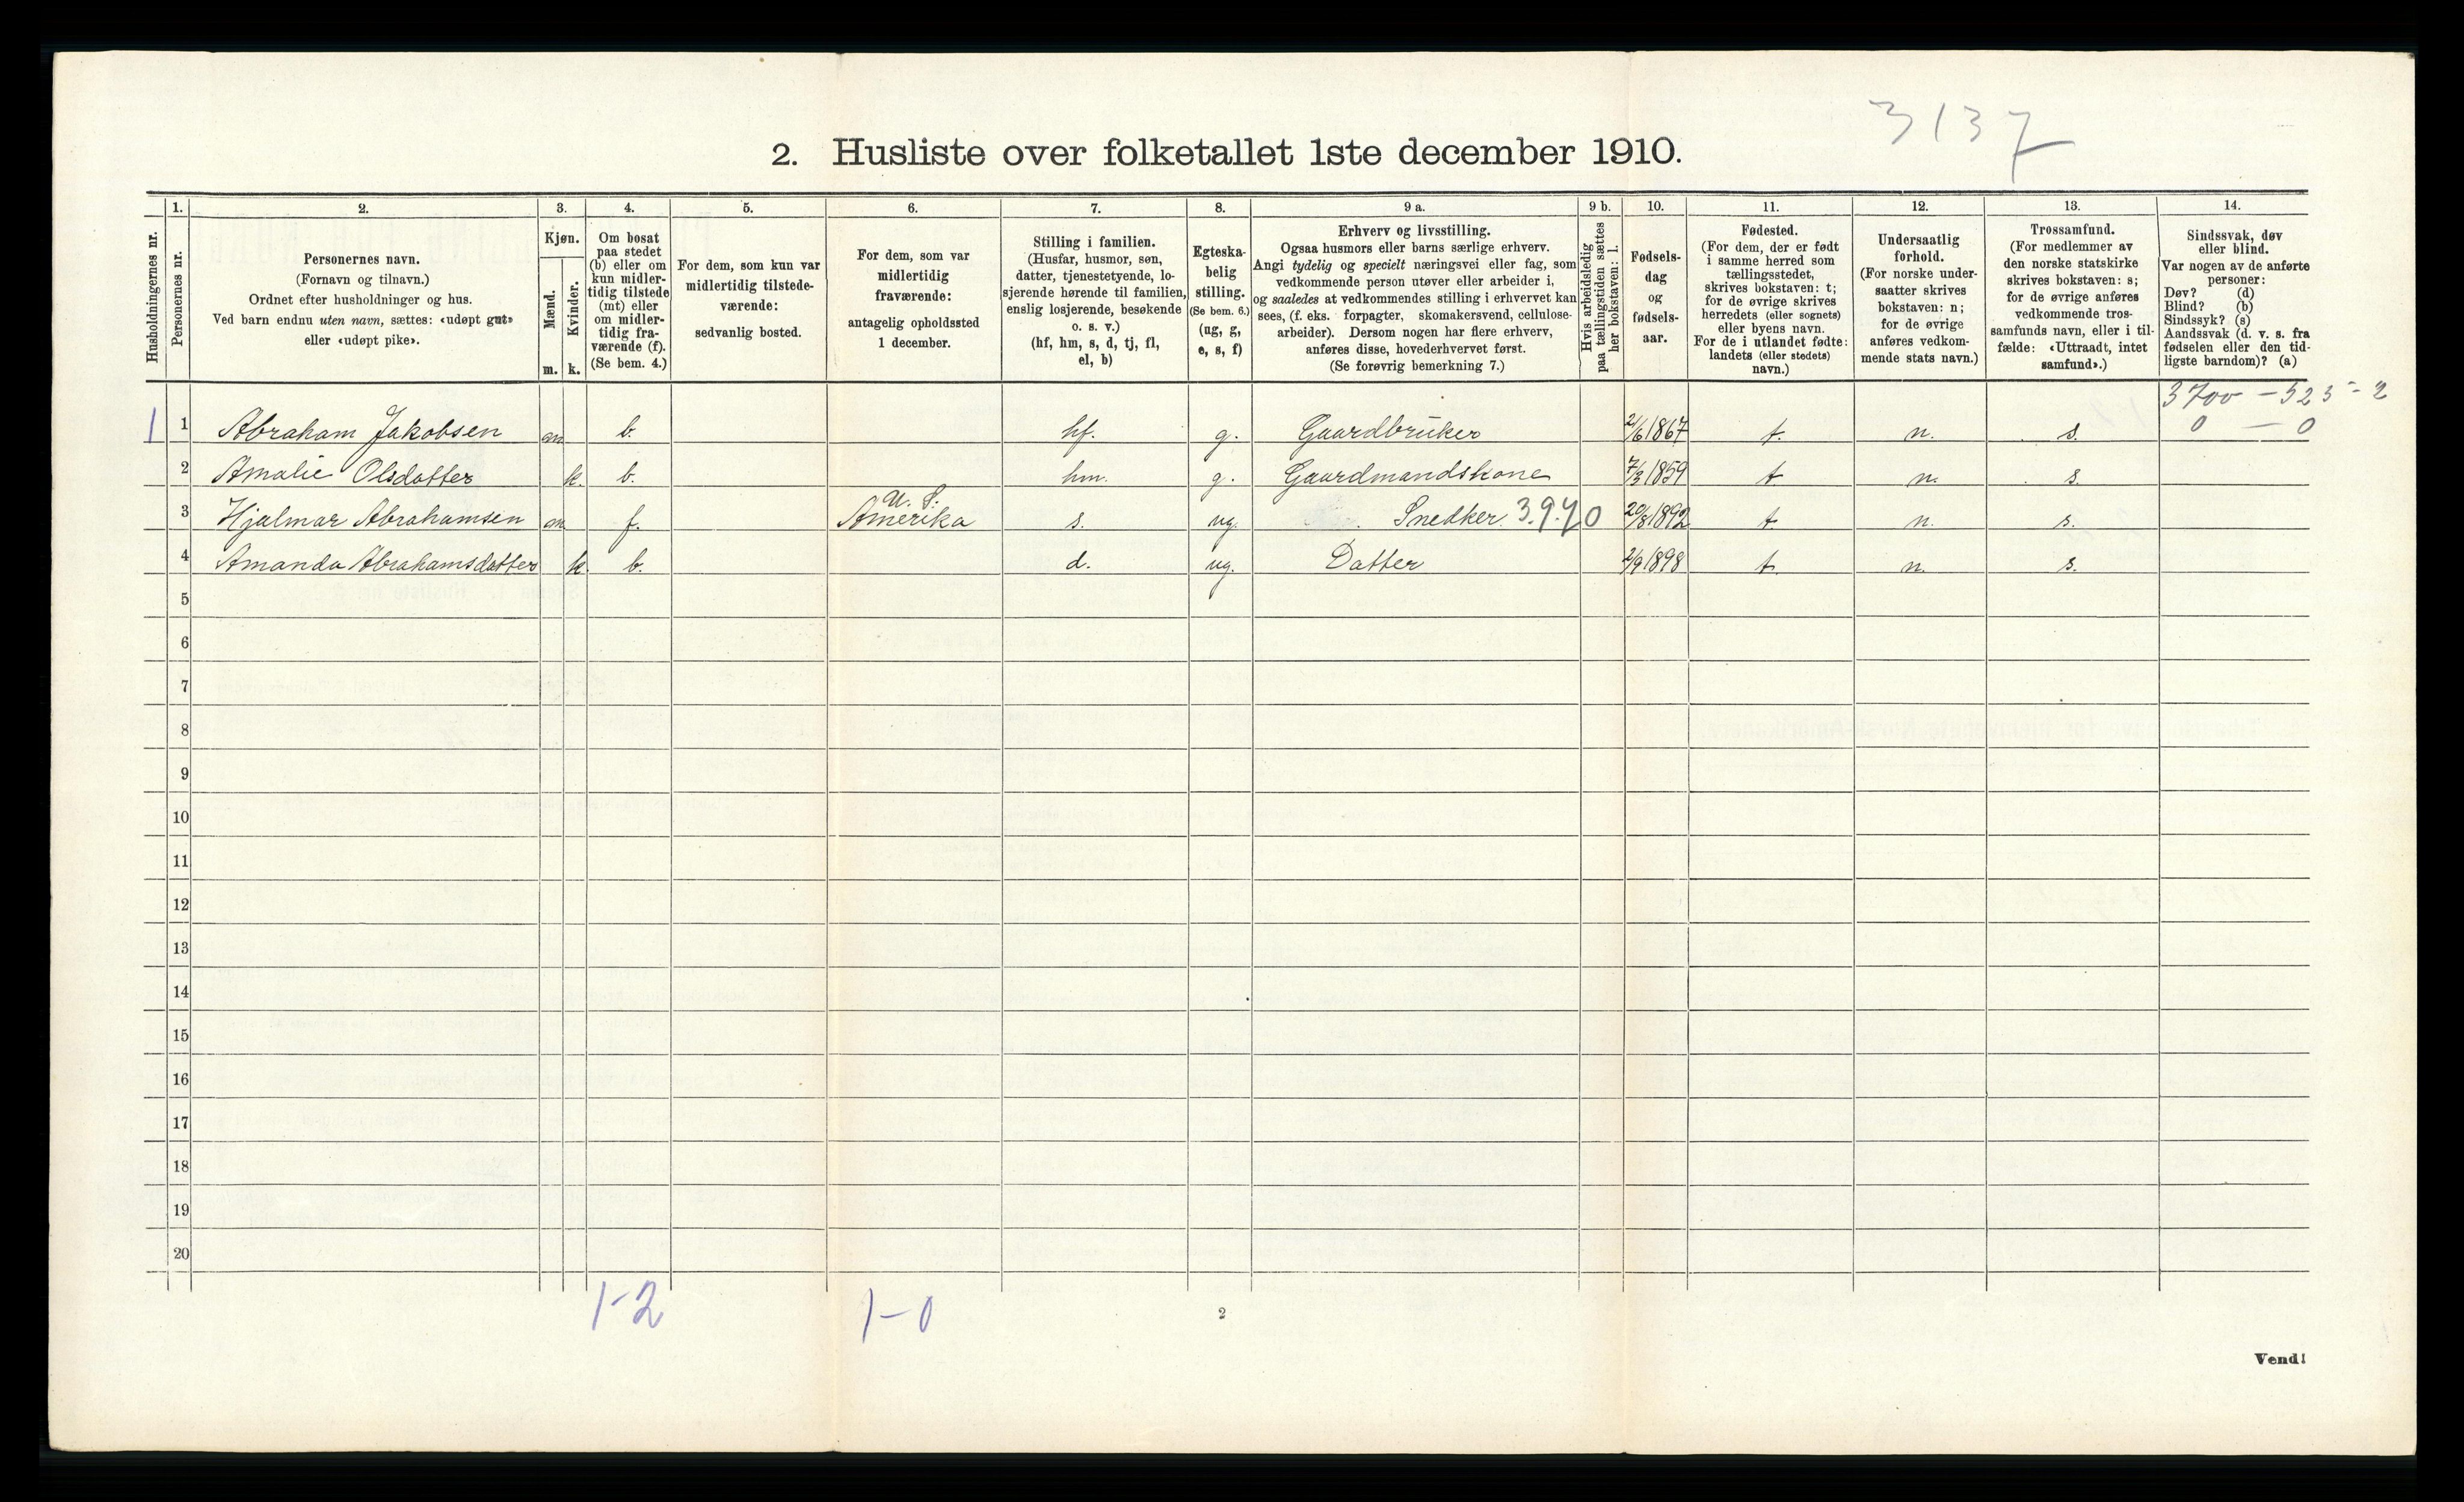 3137
2. Husliste over folketallet 1ste december 1910.
Husholdningernes nr.
1.
Personernes nr.
2.
Personernes navn.
(Fornavn og tilnavn.)
Ordnet efter husholdninger og hus.
Ved barn endnu uten navn, sættes: «udøpt gut»
eller «udøpt pike».
3.
Kjøn.
Mænd.
m.
Kvinder.
k.
4.
Om bosat
paa stedet
(b) eller om
kun midler-
tidig tilstede
(mt) eller
om midler-
tidig fra-
værende (f).
(Se bem. 4.)
5.
For dem, som kun var
midlertidig tilstede-
værende:
sedvanlig bosted.
6.
For dem, som var
midlertidig
fraværende:
antagelig opholdssted
1 december.
7.
Stilling i familien.
(Husfar, husmor, søn,
datter, tjenestetyende, lo-
sjerende hørende til familien,
enslig losjerende, besøkende
o. s. v.)
(hf, hm, s, d, tj, fl,
el, b)
8.
Egteska-
belig
stilling.
(Se bem. 6.)
(ug, g,
e, s, f)
9 a.
Erhverv og livsstilling.
Ogsaa husmors eller barns særlige erhverv.
Angi tydelig og specielt næringsvei eller fag, som
vedkommende person utøver eller arbeider i,
og saaledes at vedkommendes stilling i erhvervet kan
sees, (f. eks. forpagter, skomakersvend, cellulose-
arbeider). Dersom nogen har flere erhverv,
anføres disse, hovederhvervet først.
(Se forøvrig bemerkning 7.)
9 b.
Hvis arbeidsledig
paa tællingstiden sættes
her bokstaven: l.
10.
Fødsels-
dag
og
fødsels-
aar.
11.
Fødested.
(For dem, der er født
i samme herred som
tællingsstedet,
skrives bokstaven: t;
for de øvrige skrives
herredets (eller sognets)
eller byens navn.
For de i utlandet fødte:
landets (eller stedets)
navn.)
12.
Undersaatlig
forhold.
(For norske under-
saatter skrives
bokstaven: n;
for de øvrige
anføres vedkom-
mende stats navn.)
13.
Trossamfund.
(For medlemmer av
den norske statskirke
skrives bokstaven: s;
for de øvrige anføres
vedkommende tros-
samfunds navn, eller i til-
fælde: «Uttraadt, intet
samfund».)
14.
Sindssvak, døv
eller blind.
Var nogen av de anførte
personer:
Døv? (d)
Blind? (b)
Sindssyk? (s)
Aandssvak (d. v. s. fra
fødselen eller den tid-
ligste barndom)? (a)
3700 - 525 - 2
1 1 Abraham Jakobsen m b. hf. g. Gaardbruker 2/6 1867 t. n. s. 0 - 0
2 Amalie Olsdatter k. b. hm. g. Gaardmandskone 7/3 1859 t n. s.
U. S.
3 Hjalmar Abrahamsen m f. Amerika s. ug. Snedker 3.9.40 20/8 1892 t. n. s.
4 Amanda Abrahamsdatter k. b. d. ug. Datter 2/9 1898 t. n. s.
5
6
7
8
9
10
11
12
13
14
15
16
17
18
19
20
1-2 1-0
2
Vend!